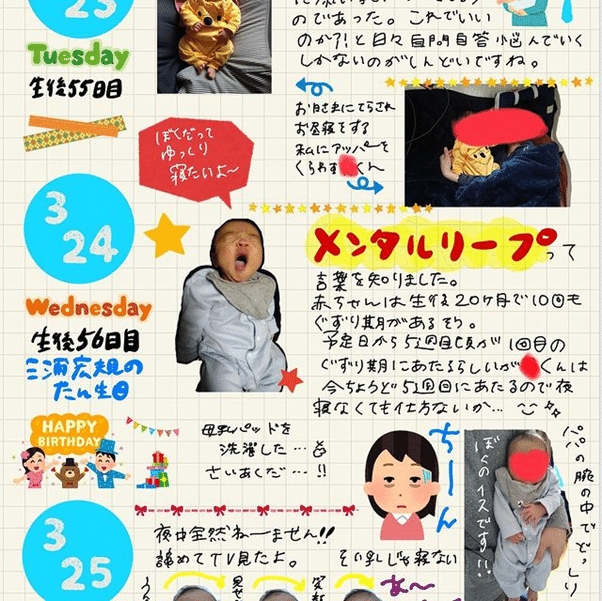 23
Tuesday
生後55日目
のであった。これでいい
のか?!と日々自問自答悩んでいく
しかないのがしんどいですね。
お日さまにてらされ
お昼寝をする
私にアッパーを
くらわす くん
ぼくだって
ゆっくり
寝たいよ〜
3
24
Wednesday
生後56日目
三浦宏規の
たん生日
HAPPY
BIRTHDAY
メンタルリープって
言葉を知りました。
赤ちゃんは生後20ヶ月で10回も
ぐずり期があるそう。
予定日から5週目頃が1回目の
ぐずり期にあたるらしいが くんは
今ちょうど5週目にあたるので夜
寝なくても仕方ないか…
母乳パッドを
洗濯した…
さいあくだ…!!
ちーん
パパの腕の中でどっしり
ぼくのイスです!!
3
25
夜中全然ねーません!!
諦めてTV見たよ。
そい乳しじゃ寝ない
あ〜